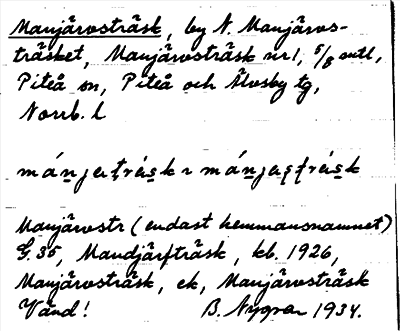 Manjärvsträsk, by N. Manjärvs-
träsket, Manjärvsträsk nr 1, 5/8 mtl,
Piteå sn, Piteå och Älvsby tg,
Norrb. l
mánjatrásk ~ mánjasträsk
Manjärvstr (endast hemmansnamnet)
G. 35, Mandjärfträsk, kb. 1926,
Manjärvsträsk, ek, Manjärvsträsk
Vänd! B. Nygren 1934.